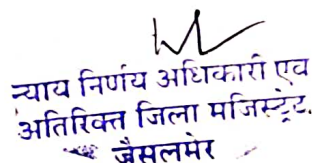 न्याय निर्णय अधिकारी एव
अतिरिक्त जिला मजिस्ट्रेट,
जैसलमेर